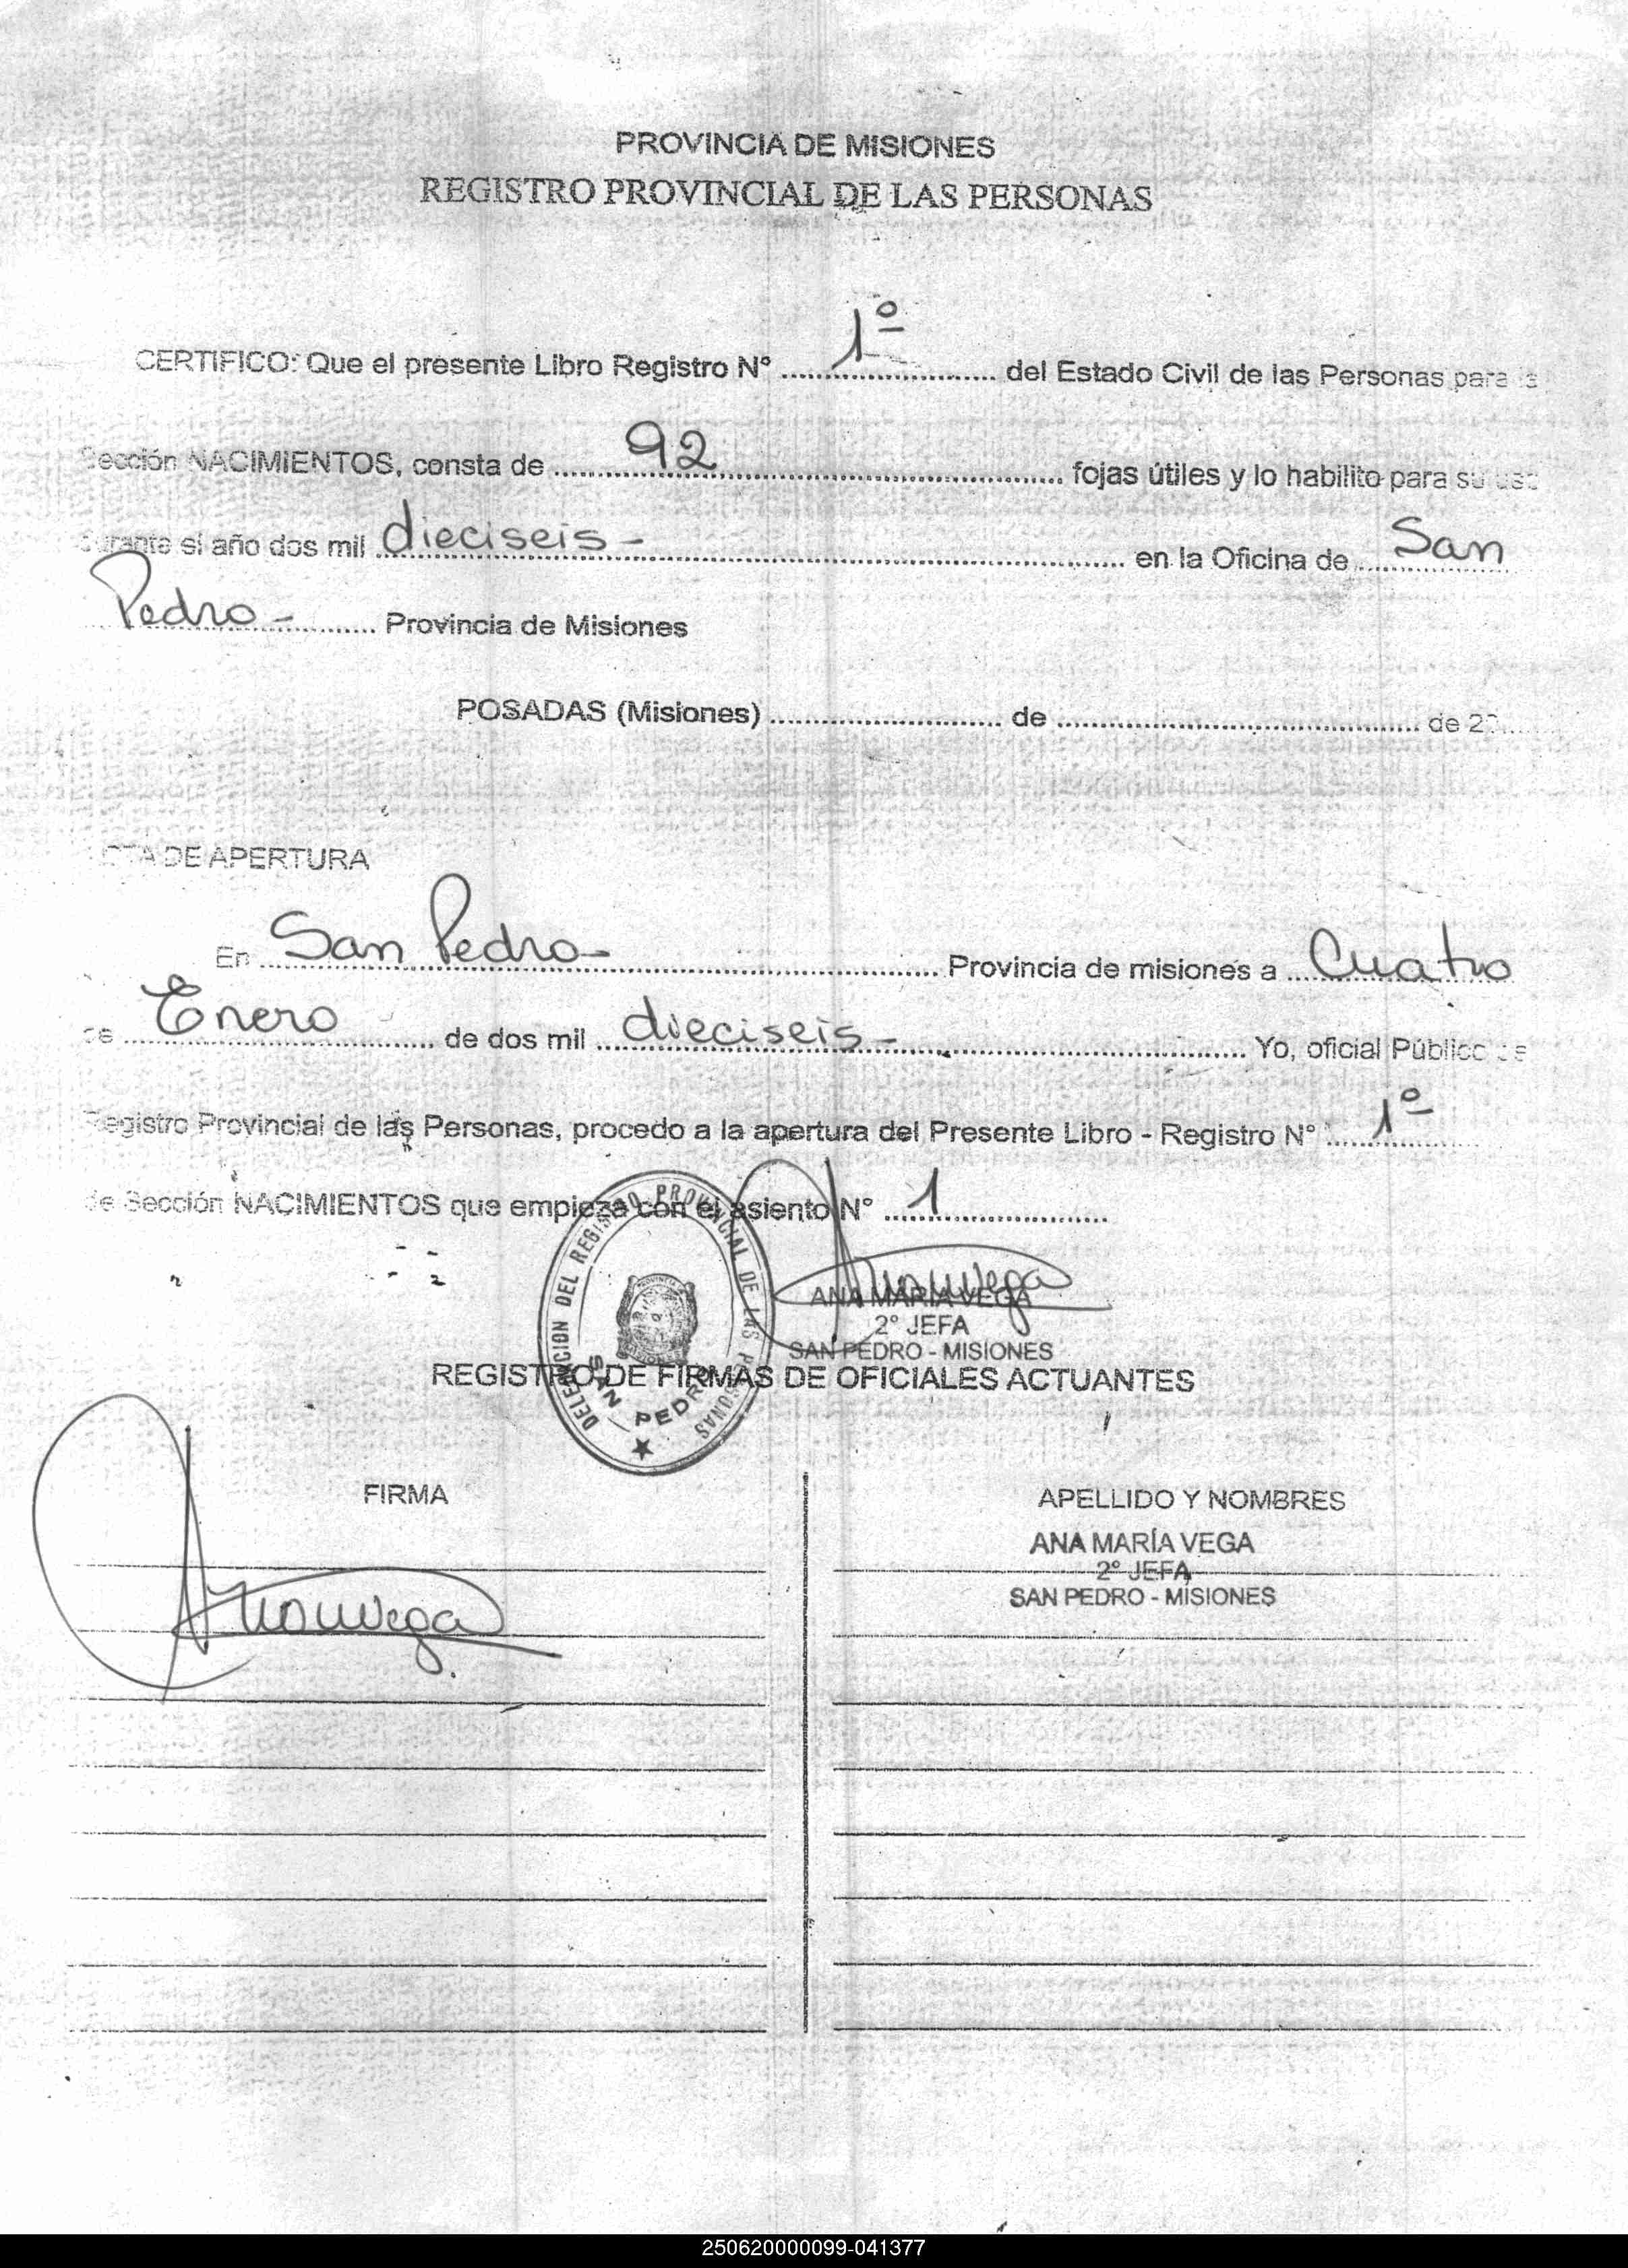 PROVINCIA DE MISIONES
REGISTRO PROVINCIAL DE LAS PERSONAS
CERTIFICO: Que el presente Libro Registro N° 1º del Estado Civil de las Personas para la
Sección NACIMIENTOS, consta de 92 fojas útiles y lo habilito para su uso
durante el año dos mil dieciseis - en la Oficina de San
Pedro - Provincia de Misiones
POSADAS (Misiones) de de 20
ACTA DE APERTURA
En San Pedro - Provincia de misiones a Cuatro
de Enero de dos mil dieciseis - Yo, oficial Público de
Registro Provincial de las Personas, procedo a la apertura del Presente Libro - Registro N° 1º
de Sección NACIMIENTOS que empieza con el asiento N° 1
DELEGACION DEL REGISTRO PROVINCIAL DE LAS PERSONAS
SAN PEDRO
ANA MARÍA VEGA
2° JEFA
SAN PEDRO - MISIONES
REGISTRO DE FIRMAS DE OFICIALES ACTUANTES
FIRMA APELLIDO Y NOMBRES
ANA MARÍA VEGA
2° JEFA
SAN PEDRO - MISIONES
250620000099-041377